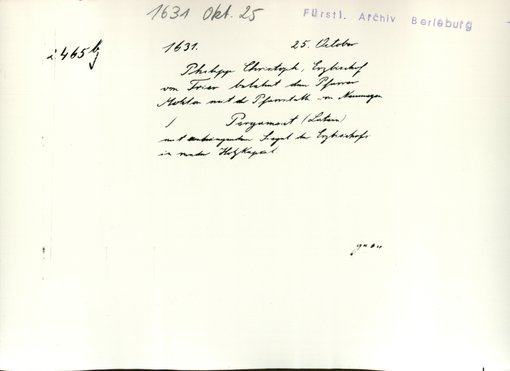 1631 Okt. 25
Fürstl. Archiv Berleburg
2465
1631. 25. October
Philipp Christoph, Erzbischof
von Trier belehnt den Pfarrer
mit der Pfarrstelle in Neumagen
1 Pergament (Latein)
mit anhangendem Siegel des Erzbischofs
in runder Holzkapsel